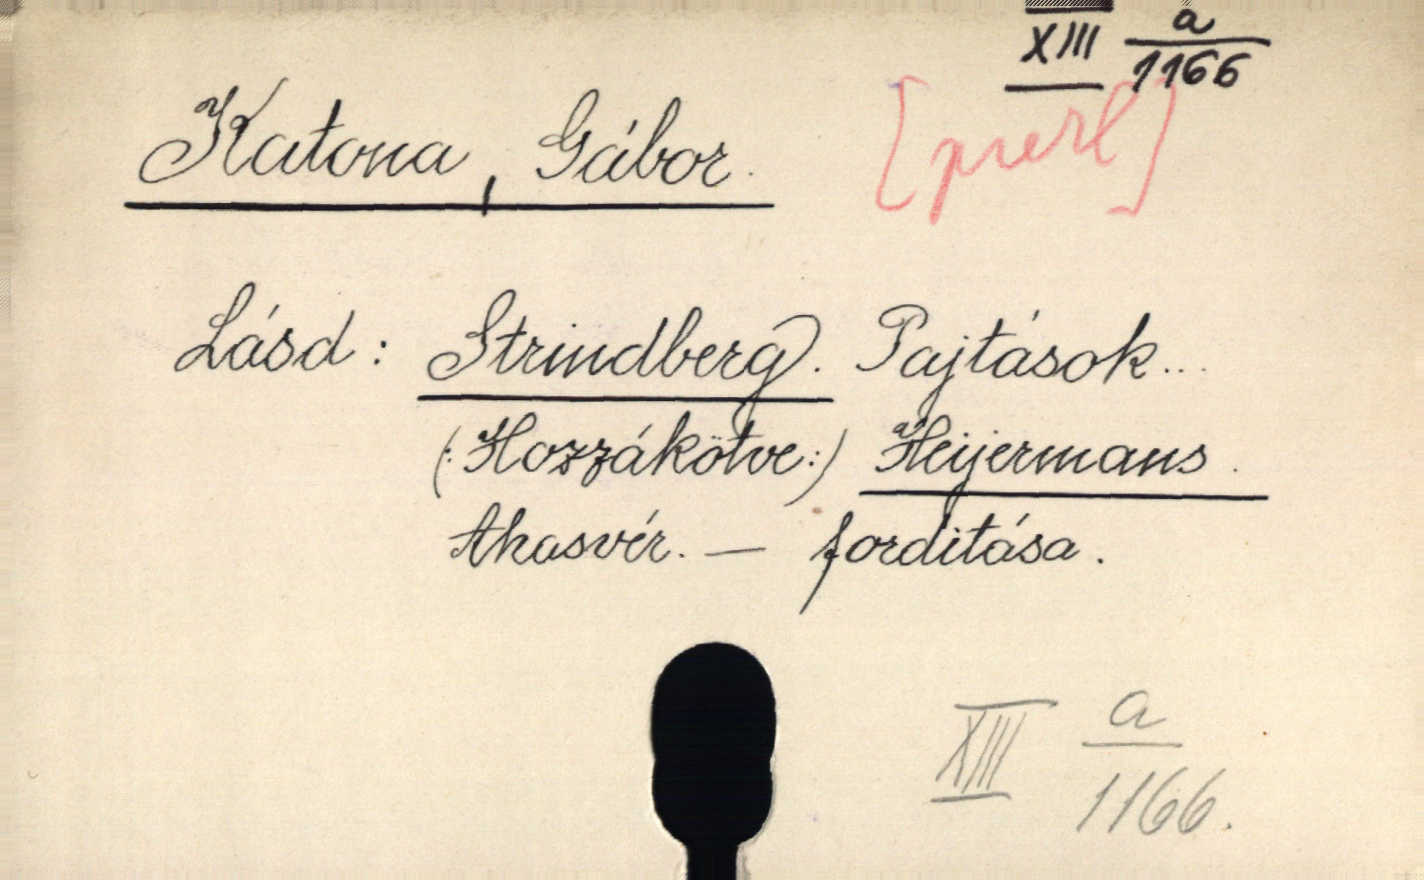 XIII a/1166
Katona, Gábor.
Lásd: Strindberg. Pajtások...
(:Hozzákötve:) Heijermans.
Ahasvér. — forditása.
XIII a/1166.